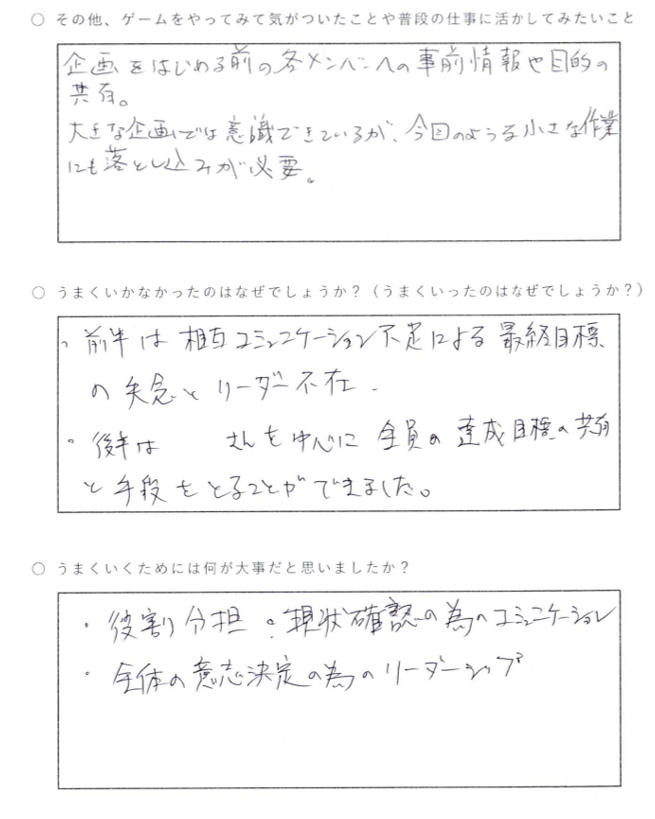 ○ その他、ゲームをやってみて気がついたことや普段の仕事に活かしてみたいこと
企画をはじめる前の各メンバーへの事前情報や目的の
共有。
大きな企画では意識できているが、今回のような小さな作業
にも落とし込みが必要。
○ うまくいかなかったのはなぜでしょうか?（うまくいったのはなぜでしょうか?）
・前半は相互コミュニケーション不足による最終目標
の失念とリーダー不在.
・後半は　　さんを中心に全員の達成目標の共有
と手段をとることができました。
○ うまくいくためには何が大事だと思いましたか?
・役割分担。現状確認の為のコミュニケーション
・全体の意志決定の為のリーダーシップ